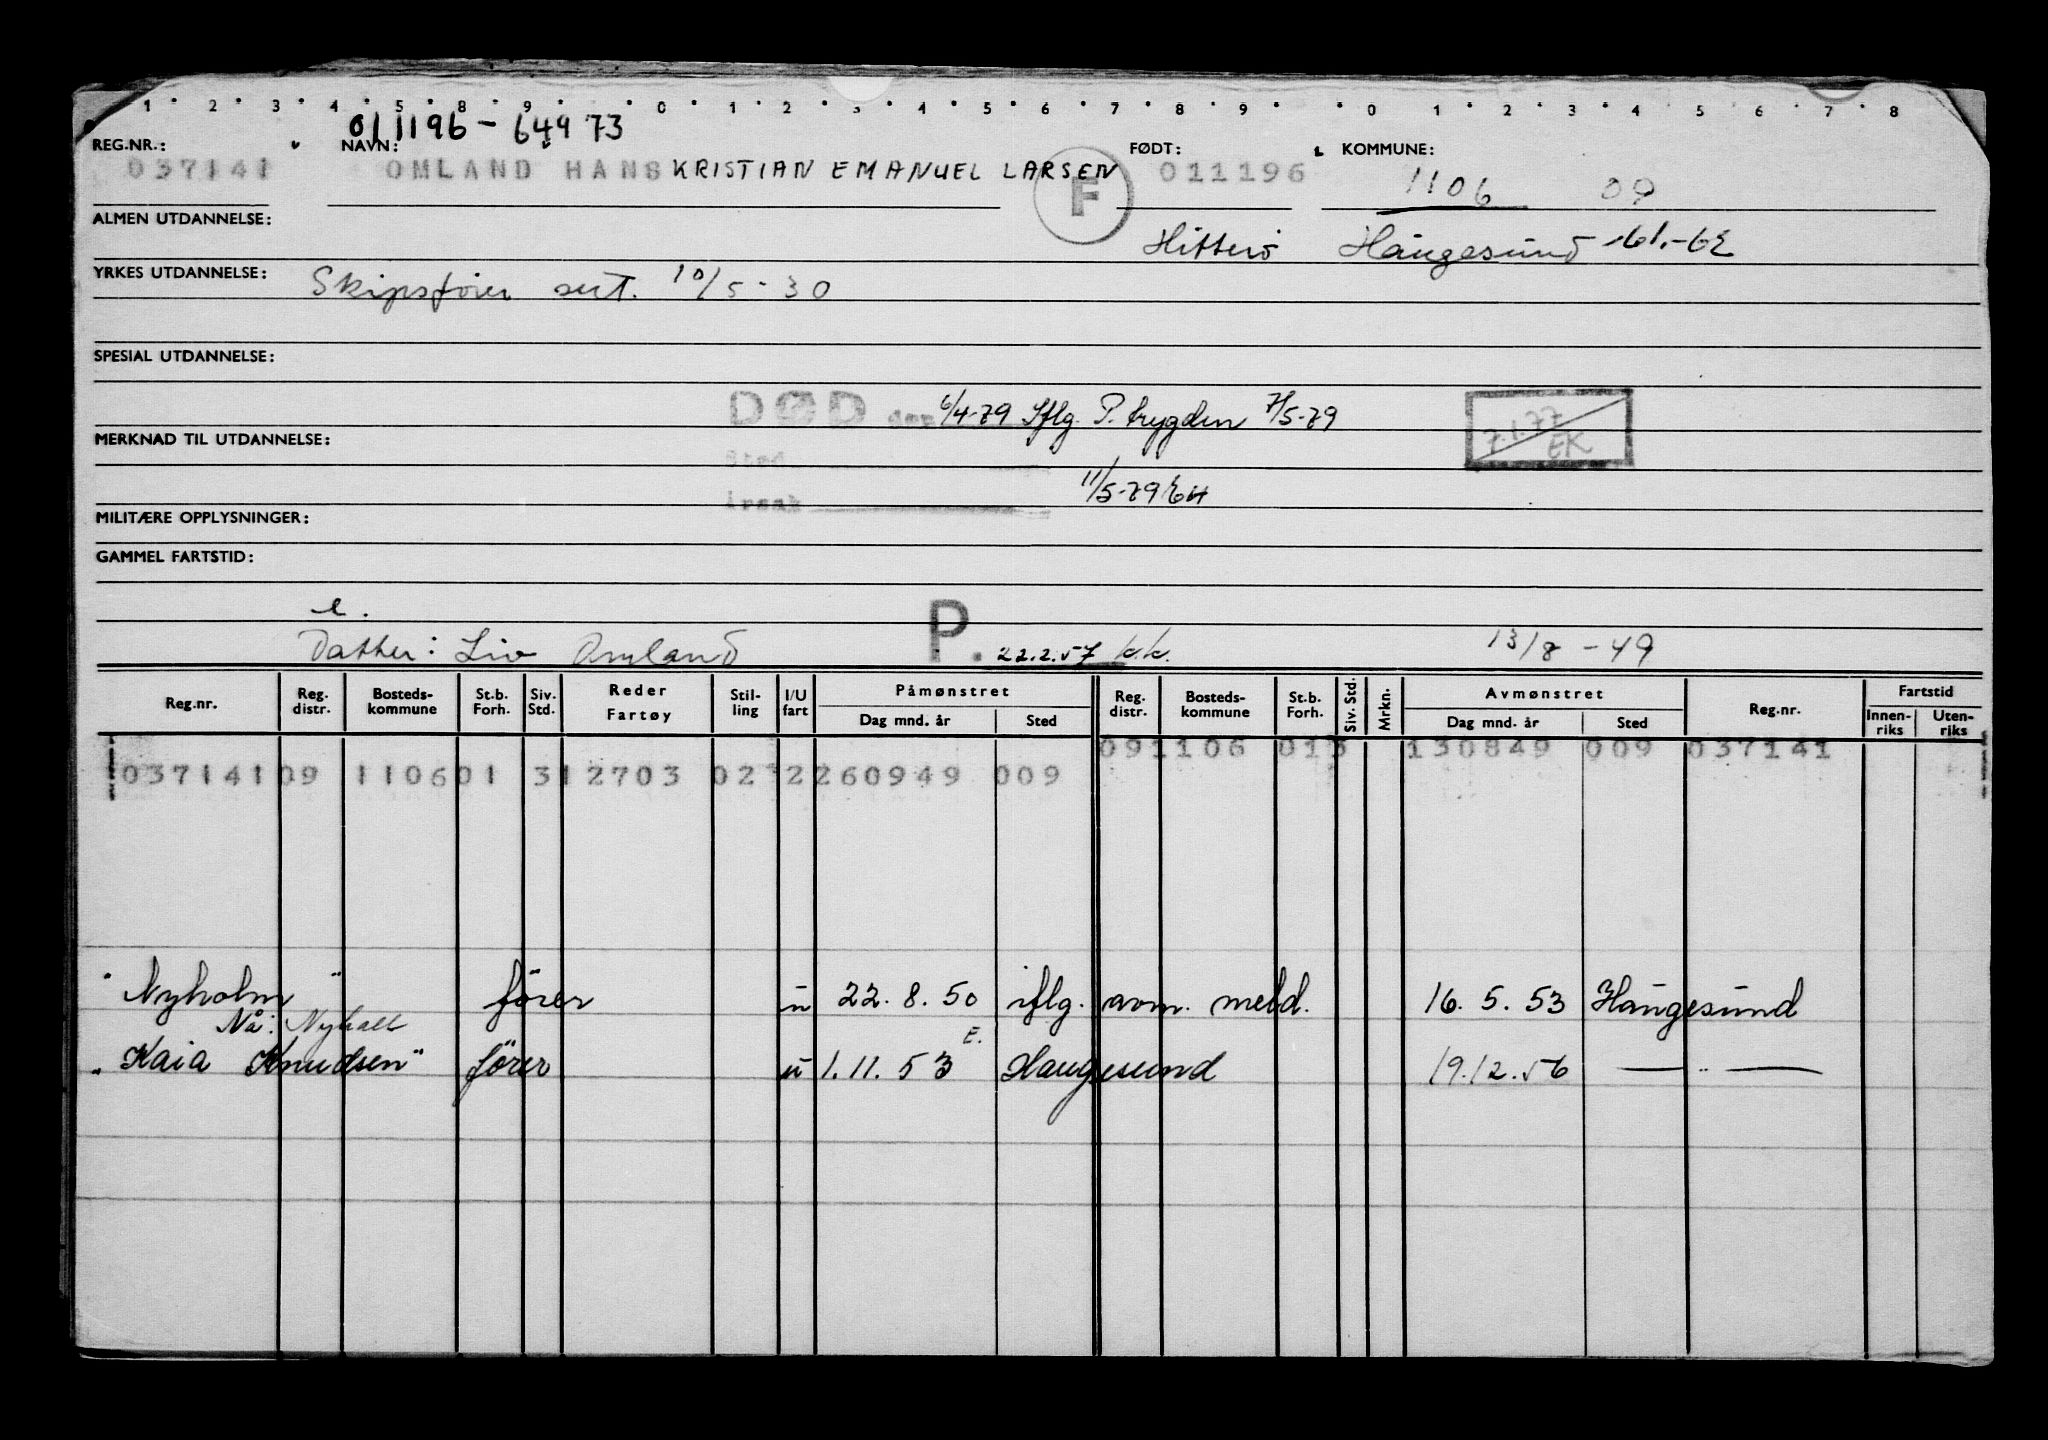 1 2 3 4 5 8 9 0 1 2 3 4 5 6 7 8 9 0 1 2 3 4 5 6 7 8
011196 - 64973
REG.NR.: NAVN: FØDT: KOMMUNE:
037141 OMLAND HANS KRISTIAN EMANUEL LARSEN 011196 1106 09
F
ALMEN UTDANNELSE:
Hitterö Haugesund -61.-62
YRKES UTDANNELSE: Skipsförer sert. 10/5-30
SPESIAL UTDANNELSE:
DØD den 6/4-79 Iflg. P. trygden 7/5-79
7.1.77
EK
MERKNAD TIL UTDANNELSE:
Sted
11/5-79 EH
Årsak
MILITÆRE OPPLYSNINGER:
GAMMEL FARTSTID:
e.
Datter: Liv Omland P. 22.2.57 k.k. 13/8-49
Reg.nr. Reg. distr. Bosteds-kommune St.b. Forh. Siv. Std. Reder Fartøy Stil-ling I/U fart Påmønstret Dag mnd. år Sted Reg. distr. Bosteds-kommune St.b. Forh. Siv. Std. Mrkn. Avmønstret Dag mnd. år Sted Reg.nr. Fartstid Innen-riks Uten-riks
091106 013 130849 009 037141
037141 09 1106 01 3 12703 02 2 260949 009
"Nyholm" förer u 22.8.50 iflg. avm. meld. 16.5.53 Haugesund
Nå: Nyhall E.
"Kaia Knudsen" förer u 1.11.53 Haugesund 19.12.56 — " —